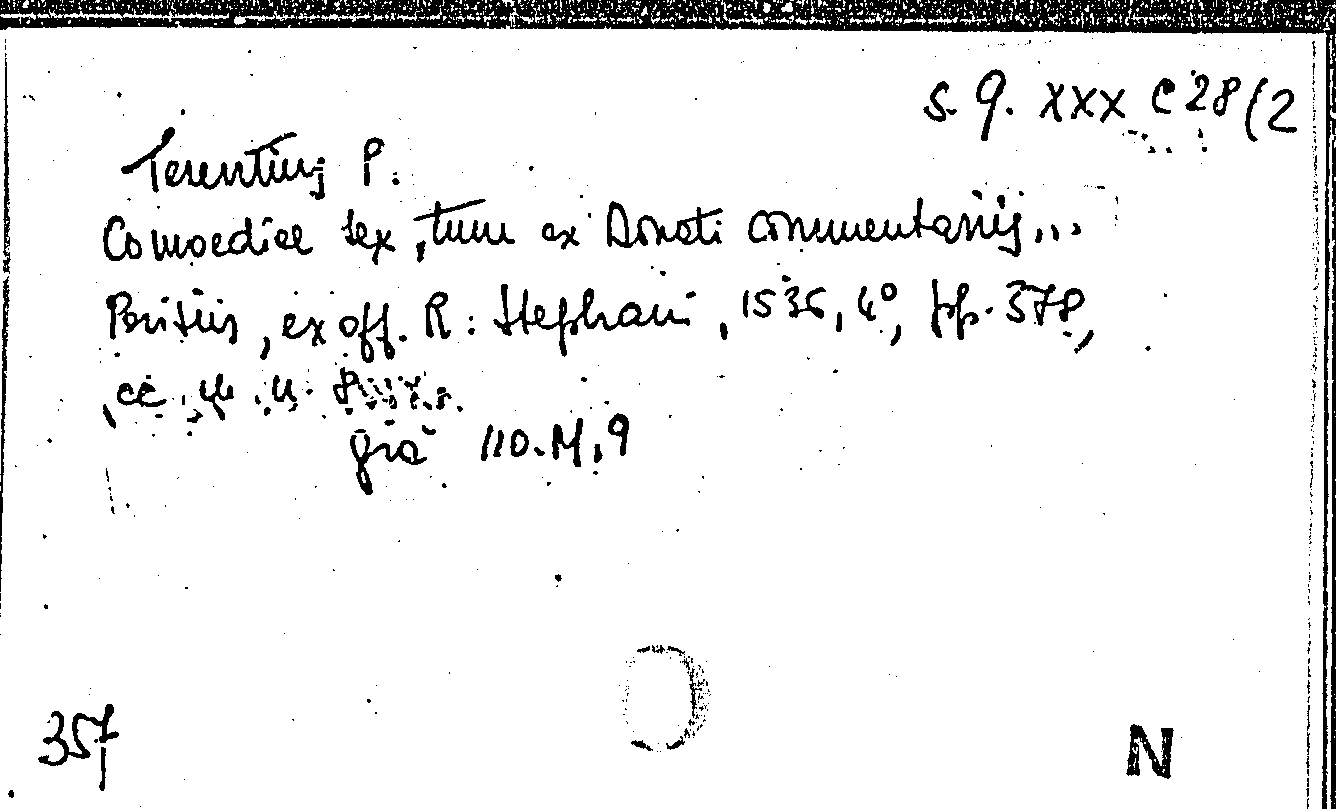 S. Q. XXX C 28(2
Terentius P.
Comoediae sex, tum ex Donati commentariis...
Parisiis, ex off. R. Stephani, 1536, 4°, pp. 378,
cc.
già 110.M.9
357
N